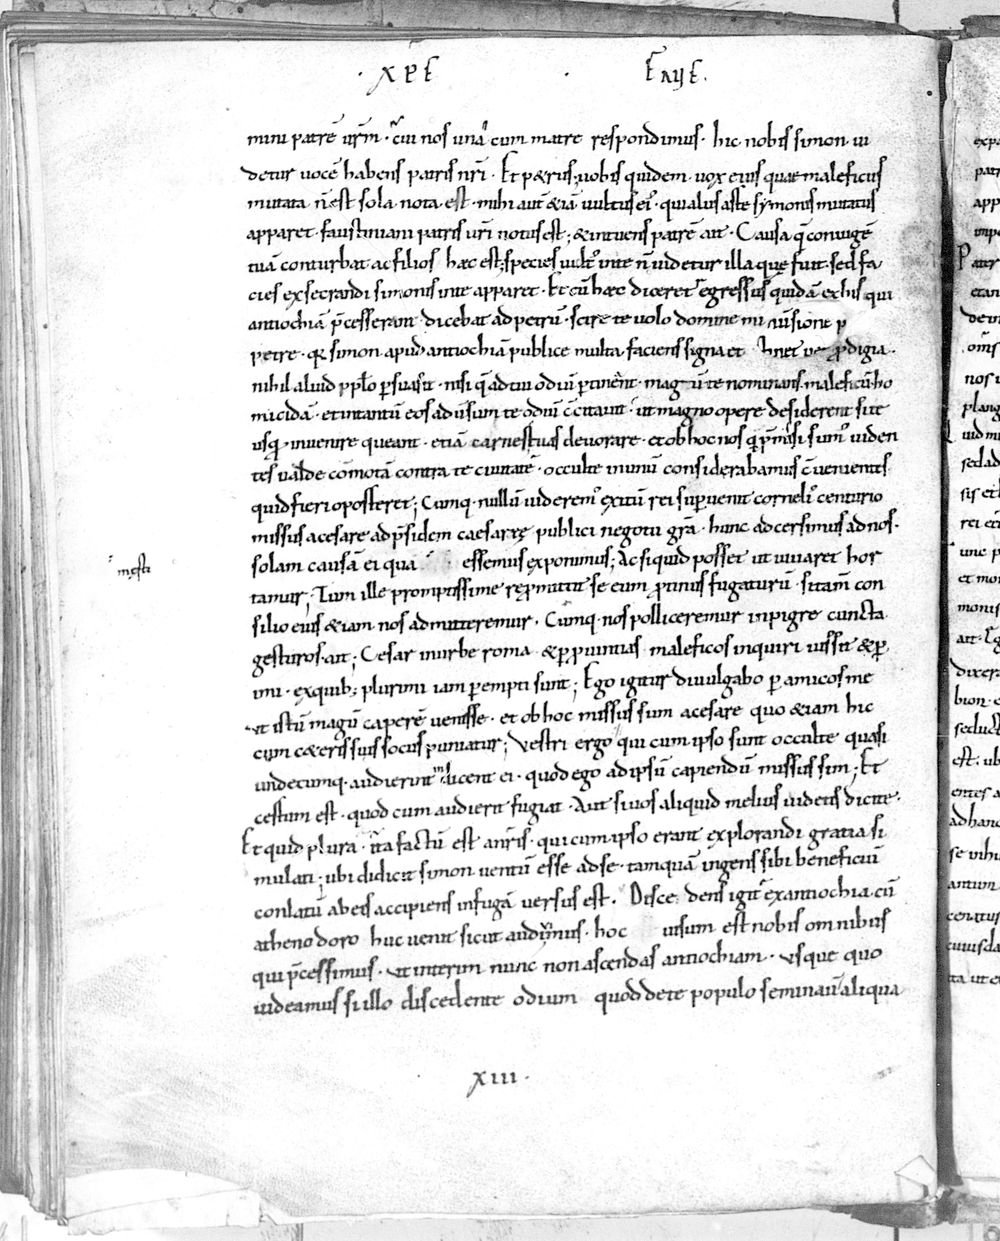 · XPE · EλYE·
mini patrē urm̄ · cui nos unā cum matre respondimus · hic nobis simon ui
detur uocē habens patris nr̄i · Et petrus; uobis quidem uox eius quae maleficus
mutata n̄ est sola nota est · mihi aut̄ & iā uultus ei' · qui alius aste symonis mutatus
apparet · faustiniani patris ur̄i notus est ; & intuens patrē ait · Causa q̄ coniugē
tuā conturbat ac filios haec est; species uult' in te n̄ uidetur illa que fuit sed fa
cies exsecrandi simonis in te apparet · Et cū haec diceret egressus quidā ex his qui
antiochiā p̄cesserant dicebat ad petrū · scire te uolo domine mi
petre · q̄ simon apud antiochiā publice multa faciens signa et prodigia ·
nihil aliud pplo persuasit · nisi q̄ ad tui odiū pertineret · magū te nominans maleficū ho
micidā · et in tantū eos aduersum te odiū c̄citauit · ut magno opere desiderent si te
usq· inuenire queant · etiā carnes tuas deuorare · et ob hoc nos q̄ p̄misi sum' uiden
tes ualde cōmotā contra te ciuitatē · occulte in unū considerabamus c̄uenientes
quid fieri oporteret ; Cumq· nullū uiderem' exitū rei superuenit corneli' centurio
missus a cesare ad p̄sidem caesareę publici negotii gr̄a · hunc adcersimus ad nos ·
solam causā ei qua essemus exponimus; Ac si quid posset ut iuuaret hor
mesti
tamur; Tum ille promptissime repmittit se eum protinus fugaturū · si tam̄ con
silio eius & iam nos admitteremur · Cumq· nos polliceremur inpigre cuncta
gesturos · ait ; Cesar in urbe roma & per prouintias maleficos inquiri iussit & per
imi · ex quib; plurimi iam perempti sunt ; Ego igitur diuulgabo per amicos me
ut istū magū caperē uenisse · et ob hoc missus sum a cesare quo & iam hic
cum ceteris suis sociis puniatur ; Vestri ergo qui cum ipso sunt occulte quasi
undecumq· audierint dicent ei · quod ego ad ipsū capiendū missus sim ; Et
cestum est · quod cum audierit fugiat · Aut si uos aliquid melius uidetis dicite ·
Et quid plura · ita factū est a nr̄is · qui cum ipso erant explorandi gratia si
mulati ; ubi didicit simon uentū esse ad se · tamquā ingens sibi beneficiū
conlatū ab eis accipiens in fugā uersus est · Discedens igit̄ ex antiochia cū
athenodoro huc uenit sicut audiuimus · hoc uisum est nobis omnibus
qui p̄cessimus · ut interim nunc non ascendas antiochiam · usque quo
uideamus si illo discedente odium quod de te populo seminauit aliqua
XIII ·